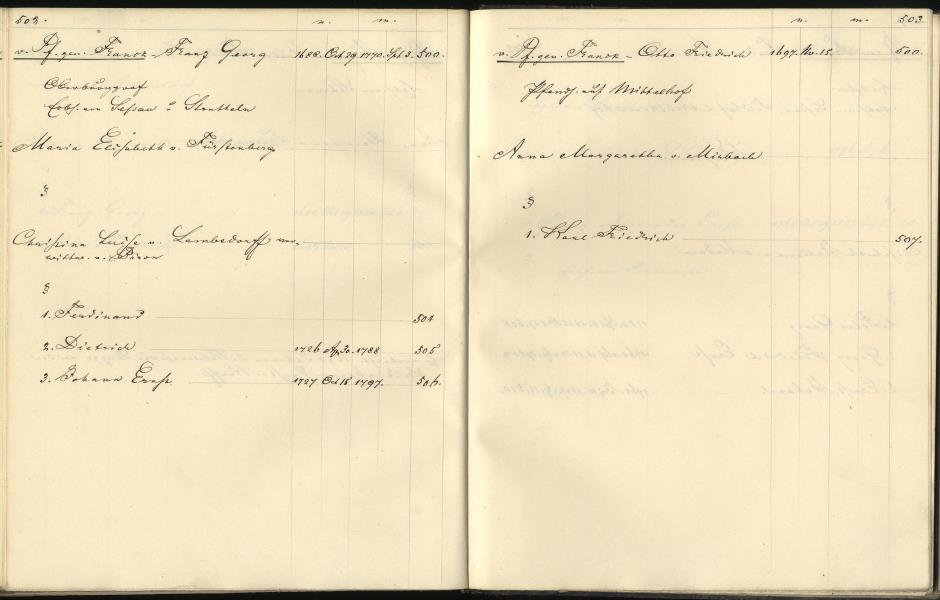 502. n. m.
v. Pf. gen. Franck - Franz Georg 1688. Oct 29. 1770. Spt 3. 500.
Oberburggraf
Erbh. von Sessau u Strutteln
Maria Elisabeth v. Fürstenberg
§
Christina Luise v. Lambsdorff
wittw. v. Büron
§
1. Ferdinand 504
2. Dietrich 1726 Ap 30. 1788 505
3. Johann Ernst. 1727 Oct 15. 1797. 506.
n. m. 503.
v. Pf. gen. Franck - Otto Friedrich 1697. Nv. 15. 500.
Pfandh. auf Mittelhof
Anna Margaretha v. Mirbach
§
1. Karl Friedrich 507.